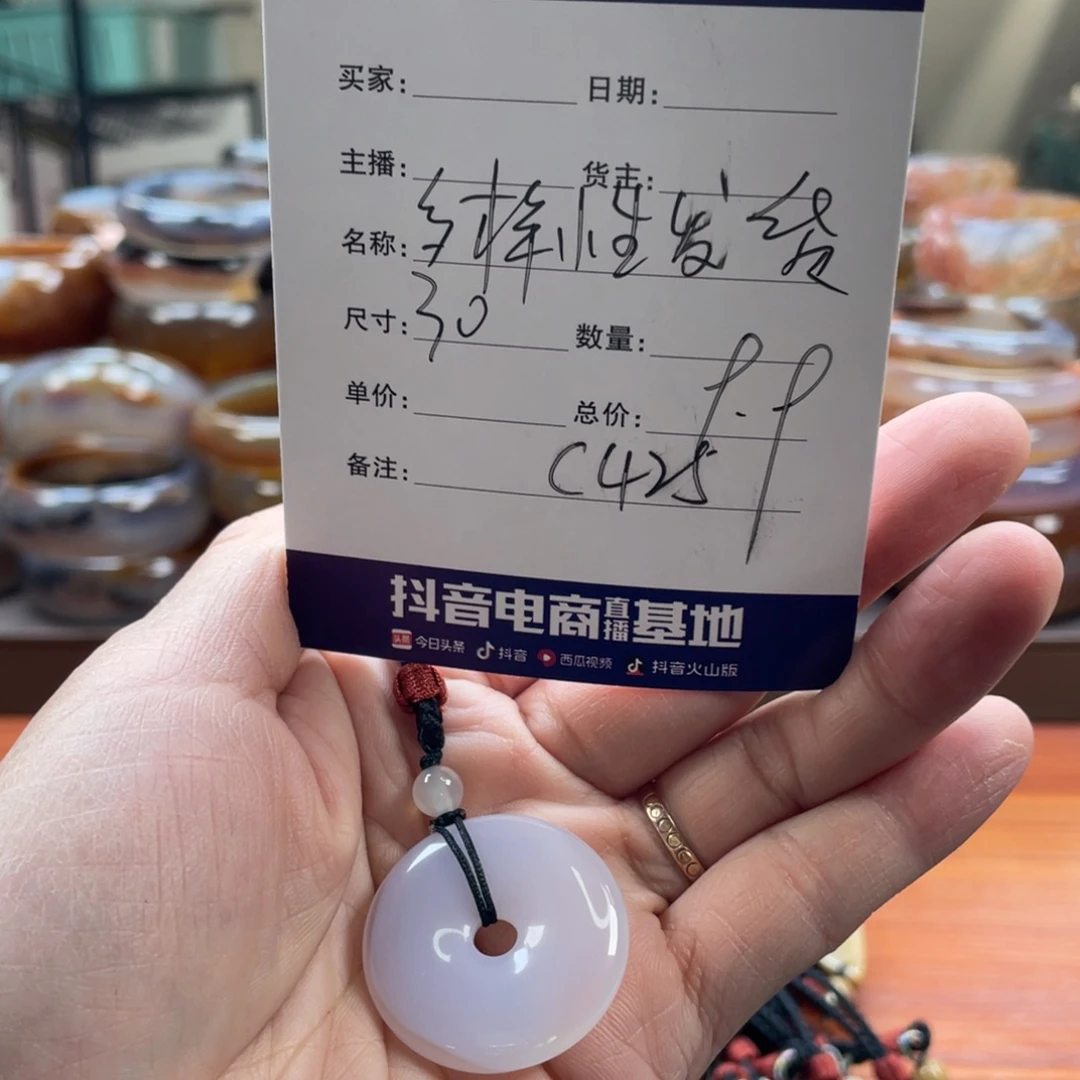 买家: 日期:
主播: 货主:
名称: 多样性发货
尺寸: 30 数量:
单价: 总价: 9.9
备注: C425
抖音电商直播基地
头条 今日头条 抖音 西瓜视频 抖音火山版